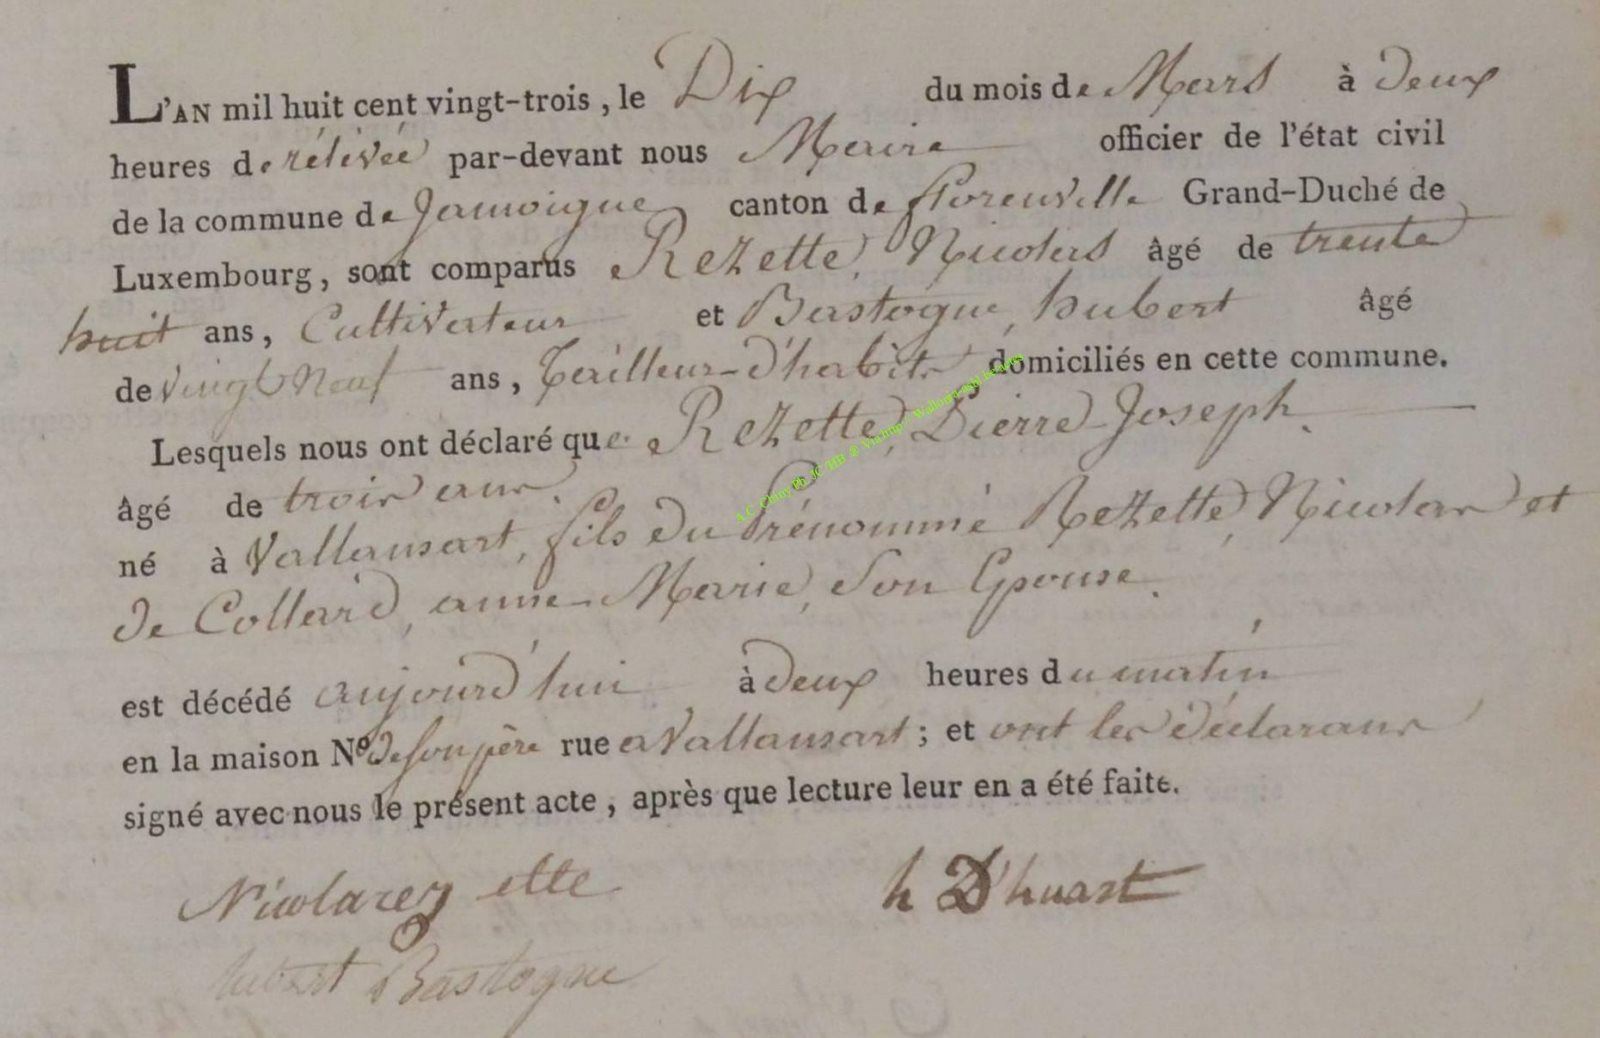 L'AN mil huit cent vingt-trois, le Dix du mois de Mars à deux
heures de rélévée par-devant nous Maire officier de l'état civil
de la commune de Jamoigne canton de florenville Grand-Duché de
Luxembourg, sont comparus Rezette, Nicolas âgé de trente
huit ans, Cultivateur et Bastogne, hubert âgé
de vingt Neuf ans, Tailleur-d'habits domiciliés en cette commune.
Lesquels nous ont déclaré que Rezette, Pierre-Joseph.
âgé de trois ans.
né à Vallansart, fils du Prénommé Rezette, Nicolas et
de Collard, anne-Marie, Son Epouse.
est décédé aujourd'hui à deux heures du matin
en la maison Nº de son père rue a Vallansart; et ont les déclarans
signé avec nous le présent acte, après que lecture leur en a été faite.
Nicola rezette h D'huart
hubert Bastogne
A.C. Chiny Ph. JC HB @